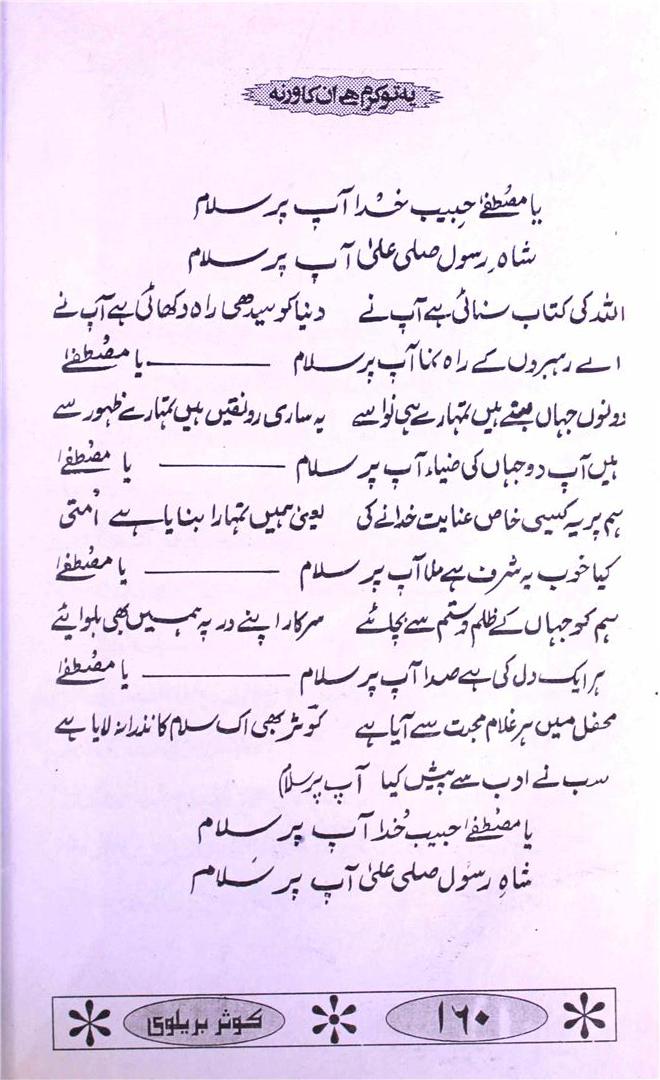 یہ تو کرم ہے ان کا ورنہ
یا مصُطفےٰ حبیب خُدا آپ پر سلام
شاہِ رسول صلی علیٰ آپ پر سلام
اللہ کی کتاب سنائی ہے آپ نے دنیا کو سیدھی راہ دکھائی ہے آپ نے
اے رہبروں کے راہ نما آپ پر سلام ——— یا مصُطفےٰ
دونوں جہاں سجے ہیں تمہارے ہی نور سے یہ ساری رونقیں ہیں تمہارے ظہور سے
ہیں آپ دو جہاں کی ضیاء آپ پر سلام ——— یا مصُطفےٰ
ہم پر یہ کیسی خاص عنایت خدا نے کی یعنی ہمیں تمہارا بنایا ہے اُمتی
کیا خوب یہ شرف ہے ملا آپ پر سلام ——— یا مصُطفےٰ
ہم کو جہاں کے ظلم و ستم سے بچائیے سرکار اپنے در پہ ہمیں بھی بلوائیے
ہر ایک دل کی ہے صدا آپ پر سلام ——— یا مصُطفےٰ
محفل میں ہر غلام محبت سے آیا ہے کوثر بھی اک سلام کا نذرانہ لایا ہے
سب نے ادب سے پیش کیا آپ پر سلام
یا مصُطفےٰ حبیب خُدا آپ پر سلام
شاہِ رسُول صلی علیٰ آپ پر سَلام
۱۶۰
کوثر بریلوی